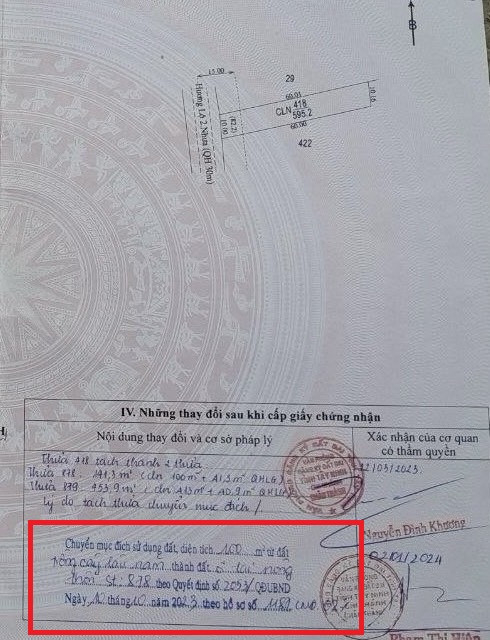 B
15.00
29
60.01
10.16
CLN 418
595.2
(82.2)
10.00
60.00
422
Hương Lộ 2 Nhựa (QH 30m)
IV. Những thay đổi sau khi cấp giấy chứng nhận
Nội dung thay đổi và cơ sở pháp lý
Xác nhận của cơ quan
có thẩm quyền
Thửa 418 tách thành 2 thửa
Thửa 878: 141,3 m² (dtn 100 m² + 41,3 m² QHLG)
Thửa 879: 453,9 m² QHLG)
Lý do tách thửa chuyển mục đích /
/03/2023
Nguyễn Đình Khương
Chuyển mục đích sử dụng đất, diện tích 100 m² từ đất
trồng cây lâu năm thành đất ở tại nông
thôn St: 878, theo Quyết định số 2053/ QĐUBND
Ngày 10 tháng 10 năm 2023 theo hồ sơ số 1181
02/01/2024
Phạm Thị